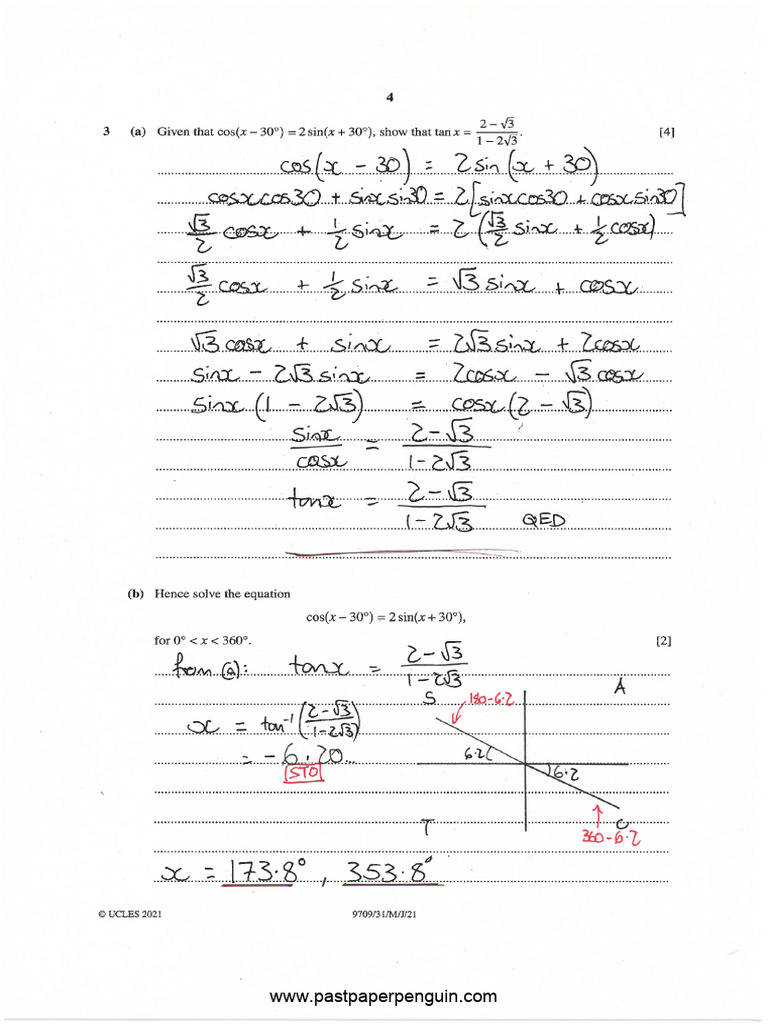 4
3 (a) Given that cos(x – 30°) = 2 sin(x + 30°), show that tan x = (2 – √3)/(1 – 2√3). [4]
cos(x – 30) = 2sin(x + 30)
cosxcos30 + sinxsin30 = 2[sinxcos30 + cosxsin30]
√3/2 cosx + 1/2 sinx = 2(√3/2 sinx + 1/2 cosx)
√3/2 cosx + 1/2 sinx = √3 sinx + cosx
√3 cosx + sinx = 2√3 sinx + 2cosx
sinx – 2√3 sinx = 2cosx – √3 cosx
sinx(1 – 2√3) = cosx(2 – √3)
sinx/cosx = (2–√3)/(1–2√3)
tanx = (2–√3)/(1–2√3) QED
(b) Hence solve the equation
cos(x – 30°) = 2 sin(x + 30°),
for 0° < x < 360°. [2]
from (a): tanx = (2–√3)/(1–2√3)
S 180–6.2 A
x = tan⁻¹((2–√3)/(1–2√3))
= –6.20...
6.2
6.2
STO
T C
360–6.2
x = 173.8°, 353.8°
© UCLES 2021 9709/31/M/J/21
www.pastpaperpenguin.com